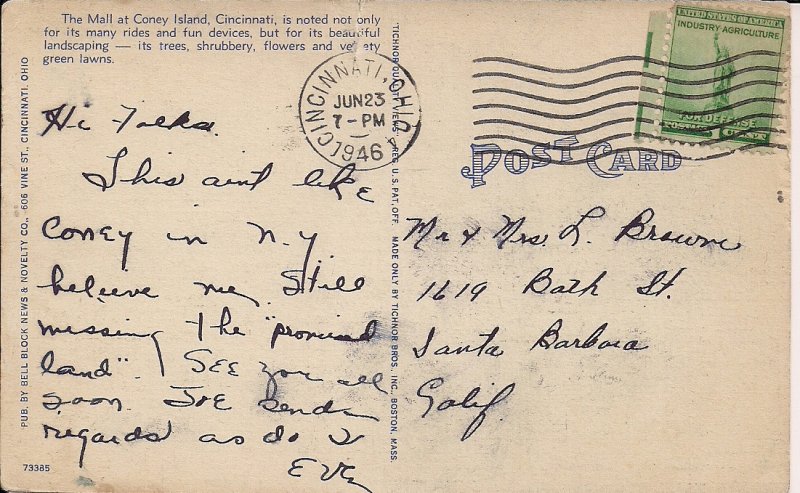 The Mall at Coney Island, Cincinnati, is noted not only
for its many rides and fun devices, but for its beautiful
landscaping — its trees, shrubbery, flowers and velvety
green lawns.
Hi Folks.
This aint like
Coney in N.Y.
believe me. Still
missing the "promised
land". SEE you all
soon. Joe sends
regards as do I
EVE
73385
PUB. BY BELL BLOCK NEWS & NOVELTY CO., 606 VINE ST., CINCINNATI, OHIO
TICHNOR QUALITY VIEWS, REG. U.S. PAT. OFF. MADE ONLY BY TICHNOR BROS. INC., BOSTON, MASS.
CINCINNATI, OHIO
JUN 23
7-PM
1946
UNITED STATES OF AMERICA
INDUSTRY AGRICULTURE
FOR DEFENSE
POST CARD
Mr & Mrs. L. Browne
1619 Bath St.
Santa Barbara
Calif.